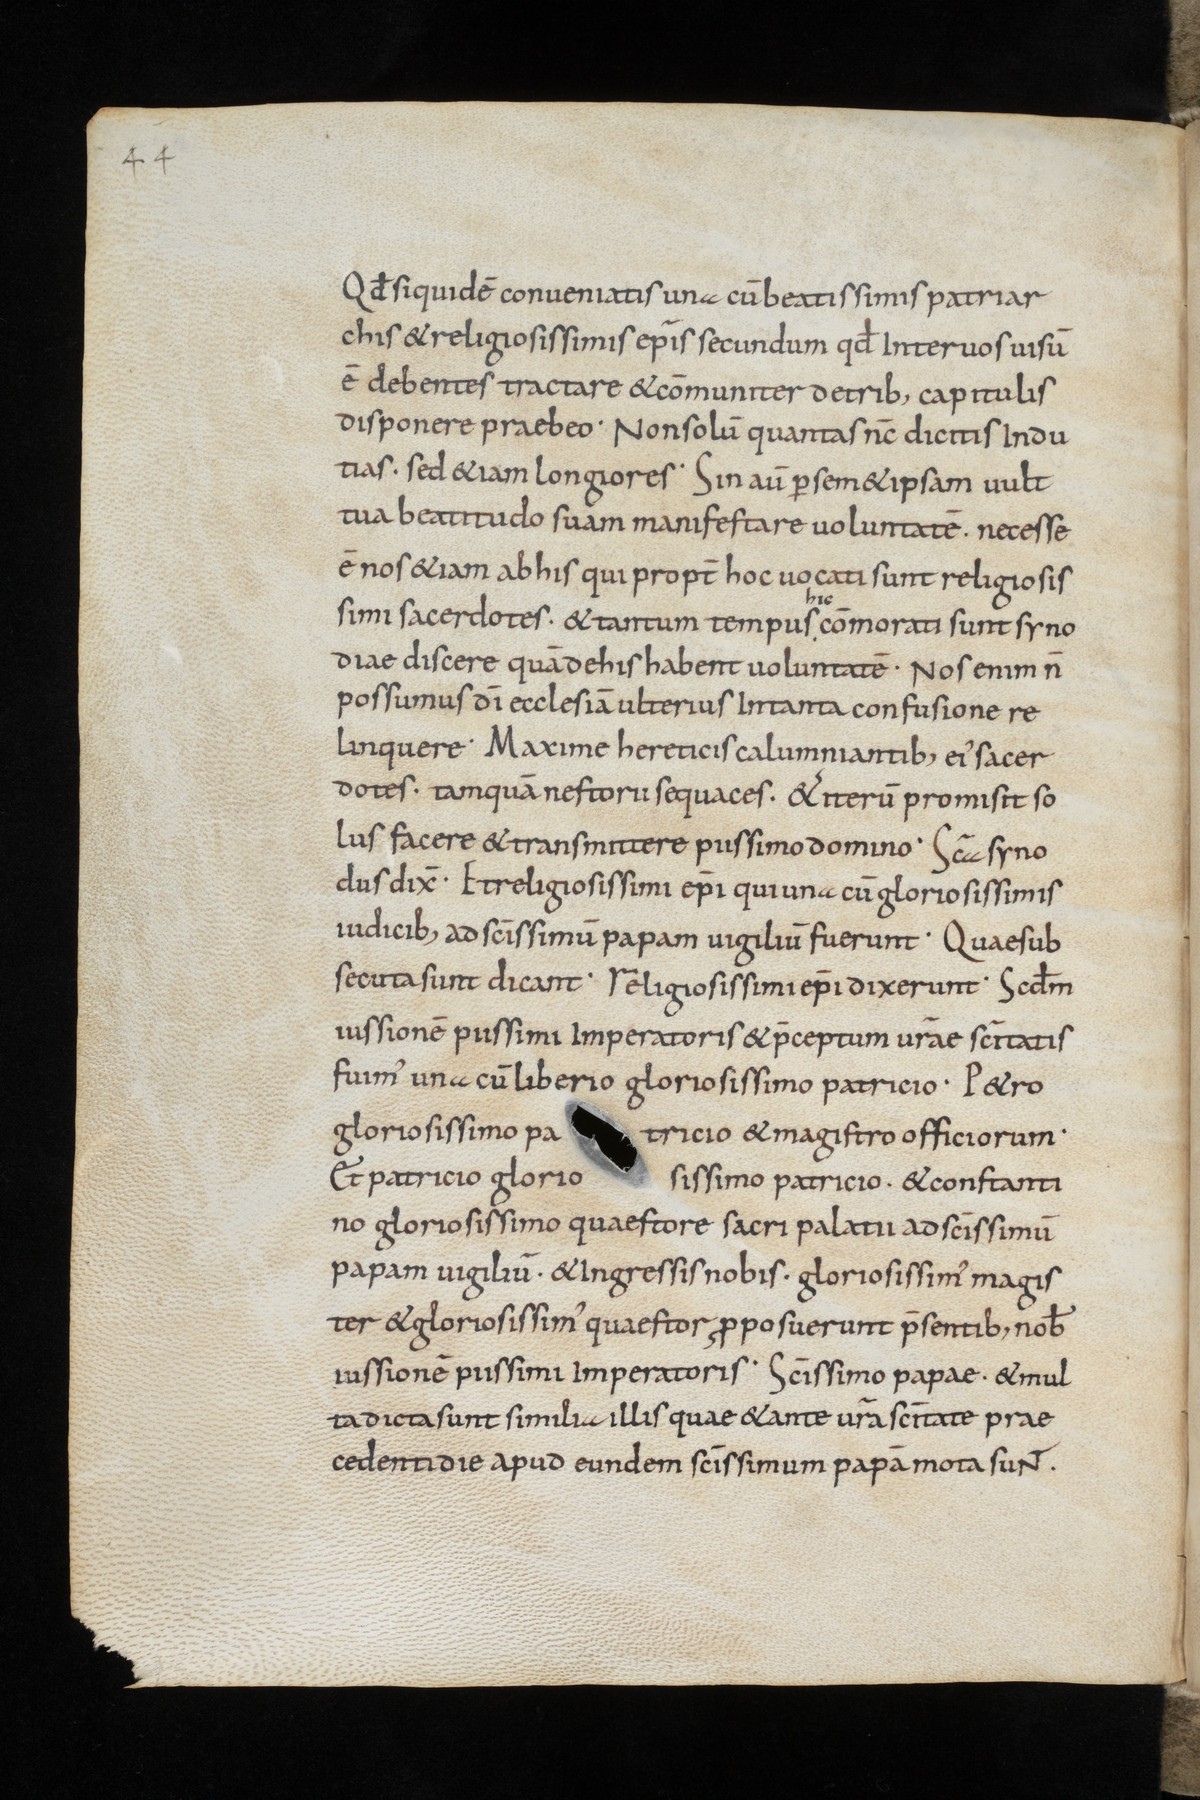 44
Qđ siquidē conueniatis una cū beatissimis patriar
chis & religiosissimis ep̄is secundum qđ Interuos uisū
ē debentes tractare & cōmuniter detrib, capitulis
disponere praebeo · Nonsolū quantas nc̄ dicitis Indu
tias · sed &iam longiores · Sin aū ꝑsem&ipsam uult
tua beatitudo suam manifestare uoluntatē · necesse
ē nos &iam abhis qui propt̄ hoc uocati sunt religiosis
hic
simi sacerdotes · & tantum tempus, cōmorati sunt syno
diae discere quādehis habent uoluntatē · Nos enim n̄
possumus dī ecclesiā ulterius Intanta confusione re
linquere · Maxime hereticis calumniantib, ei' sacer
dotes · tamquā nestorii sequaces · & iterū promisit so
lus facere & transmittere piissimo domino · Sc̄a syno
dus dix̄ · Et religiosissimi ep̄i qui una cū gloriosissimis
iudicib, ad sc̄issimū papam uigiliū fuerunt · Quaesub
secuta sunt dicant · Religiosissimi ep̄i dixerunt · Scđm
iussionē piissimi Imperatoris & p̄ceptum ur̄ae sc̄itatis
fuim' una cū liberio gloriosissimo patricio · P&ro
gloriosissimo pa tricio & magistro officiorum ·
Et patricio glorio sissimo patricio · & constanti
no gloriosissimo quaestore sacri palatii ad sc̄issimū
papam uigiliū · & Ingressis nobis · gloriosissim' magis
ter & gloriosissim' quaestor ꝓposuerunt p̄sentib, nob̄
iussionē piissimi Imperatoris · Sc̄issimo papae · & mul
ta dicta sunt similia illis quae & ante ur̄a sc̄itate prae
cedenti die apud eundem sc̄issimum papā mota suNT ·